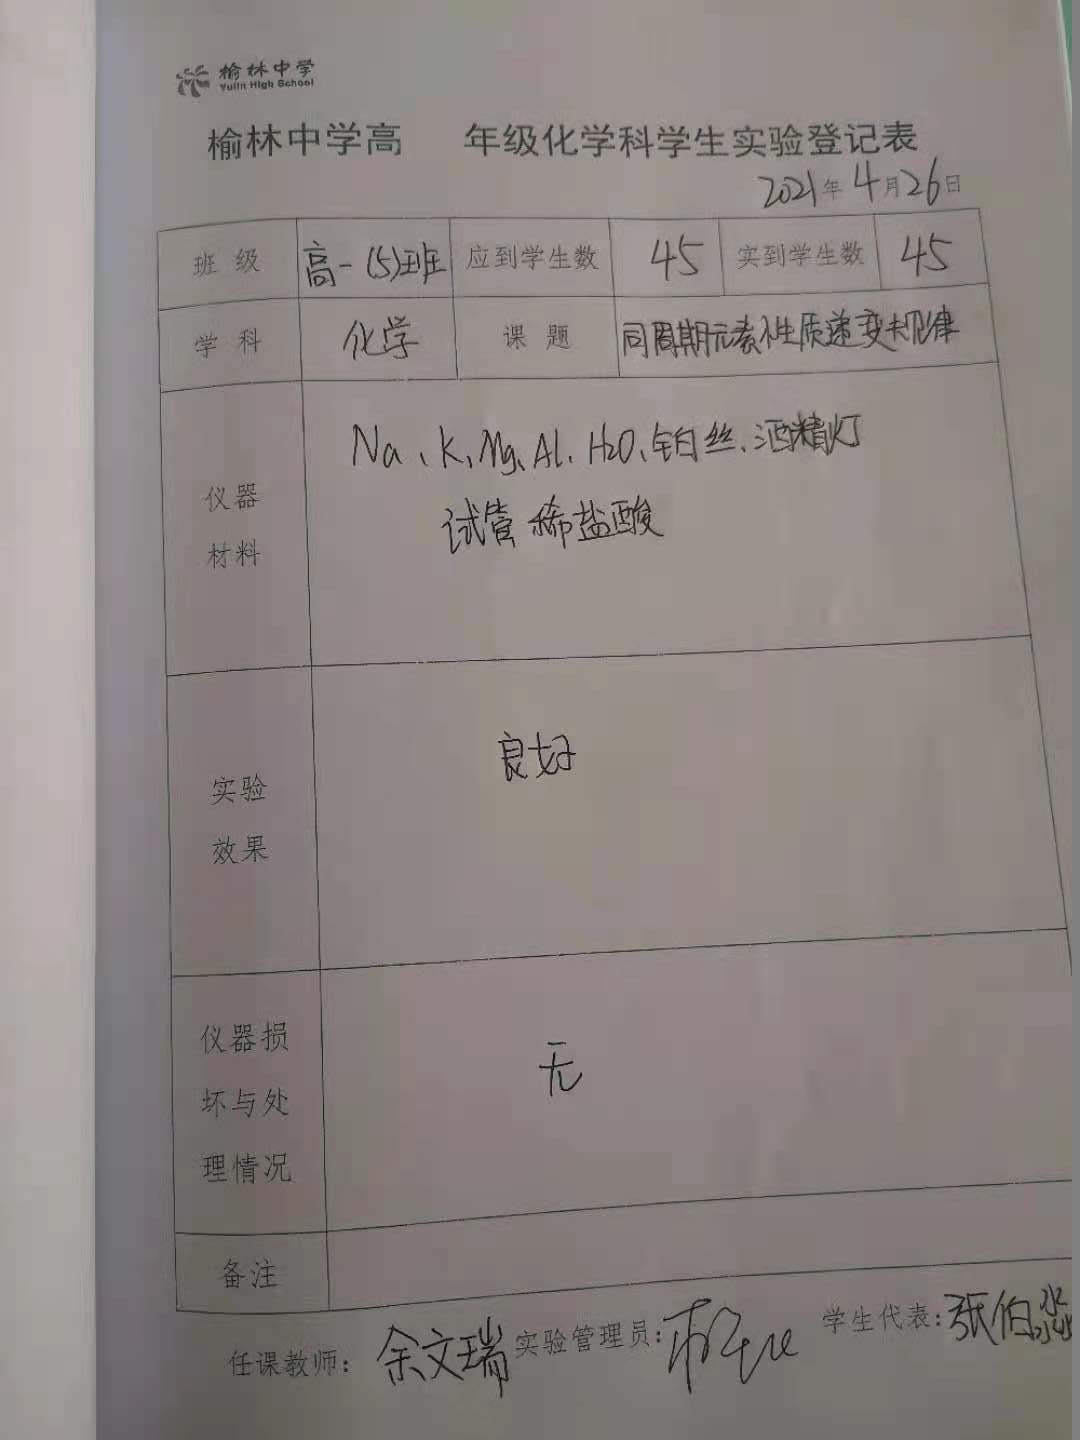 榆林中学
Yulin High School
榆林中学高 年级化学科学生实验登记表
2021年4月26日
班级 高一(5)班 应到学生数 45 实到学生数 45
学科 化学 课题 同周期元素性质递变规律
仪器材料
Na、K、Mg、Al、H2O、铂丝、酒精灯
试管 稀盐酸
实验效果
良好
仪器损坏与处理情况
无
备注
任课教师：余文瑞 实验管理员： 学生代表：张伯淼